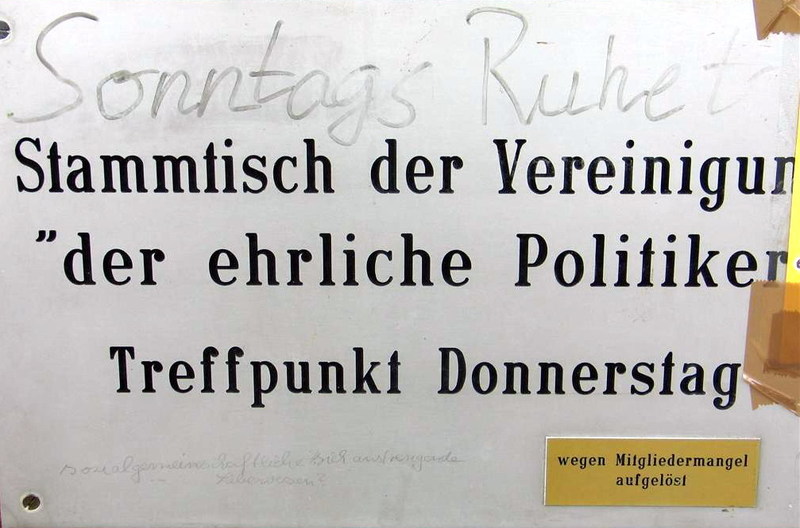 Sonntags Ruhet
Stammtisch der Vereinigun
"der ehrliche Politiker
Treffpunkt Donnerstag
wegen Mitgliedermangel
aufgelöst
sozialgemeinschaftliche sich anstrengende
Lebewesen?